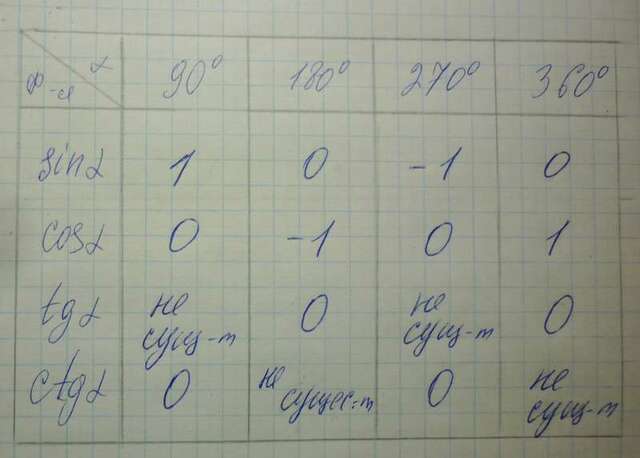 α
ф-я 90° 180° 270° 360°
sinα 1 0 -1 0
cosα 0 -1 0 1
tgα не сущ-т 0 не сущ-т 0
ctgα 0 не сущес-т 0 не сущ-т